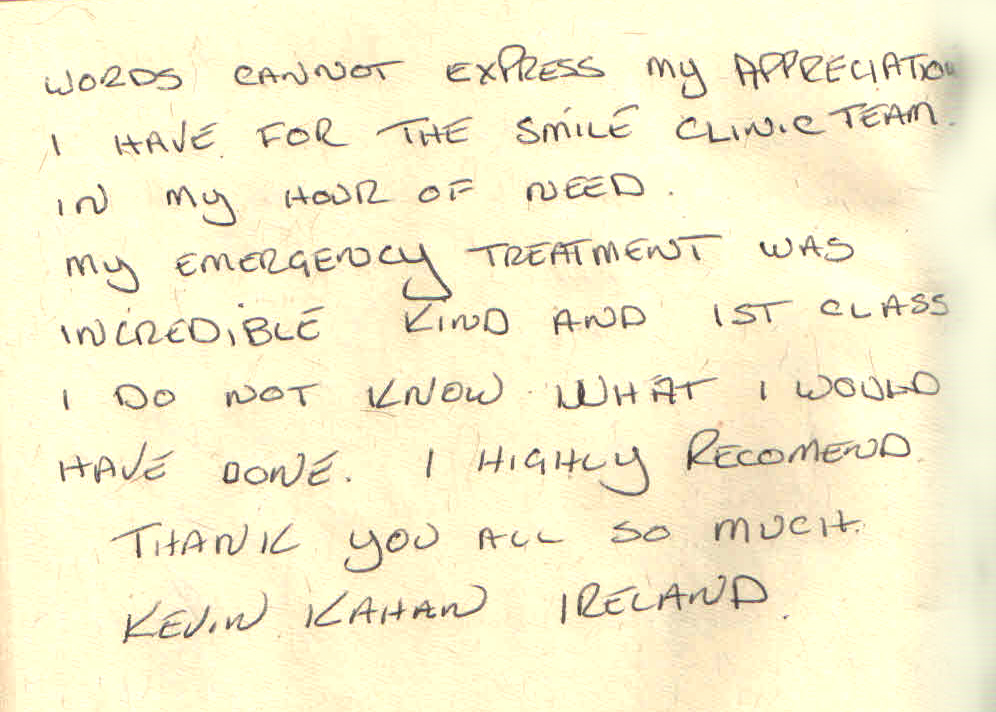 WORDS CANNOT EXPRESS My APPRECIATION
I HAVE FOR THE SMILE CLINIC TEAM.
IN My HOUR OF NEED.
My EMERGENCY TREATMENT WAS
INCREDIBLE KIND AND 1ST CLASS
I DO NOT KNOW WHAT I WOULD
HAVE DONE. I HIGHLY RECOMEND.
THANK YOU ALL SO MUCH.
KEVIN KAHAN IRELAND.